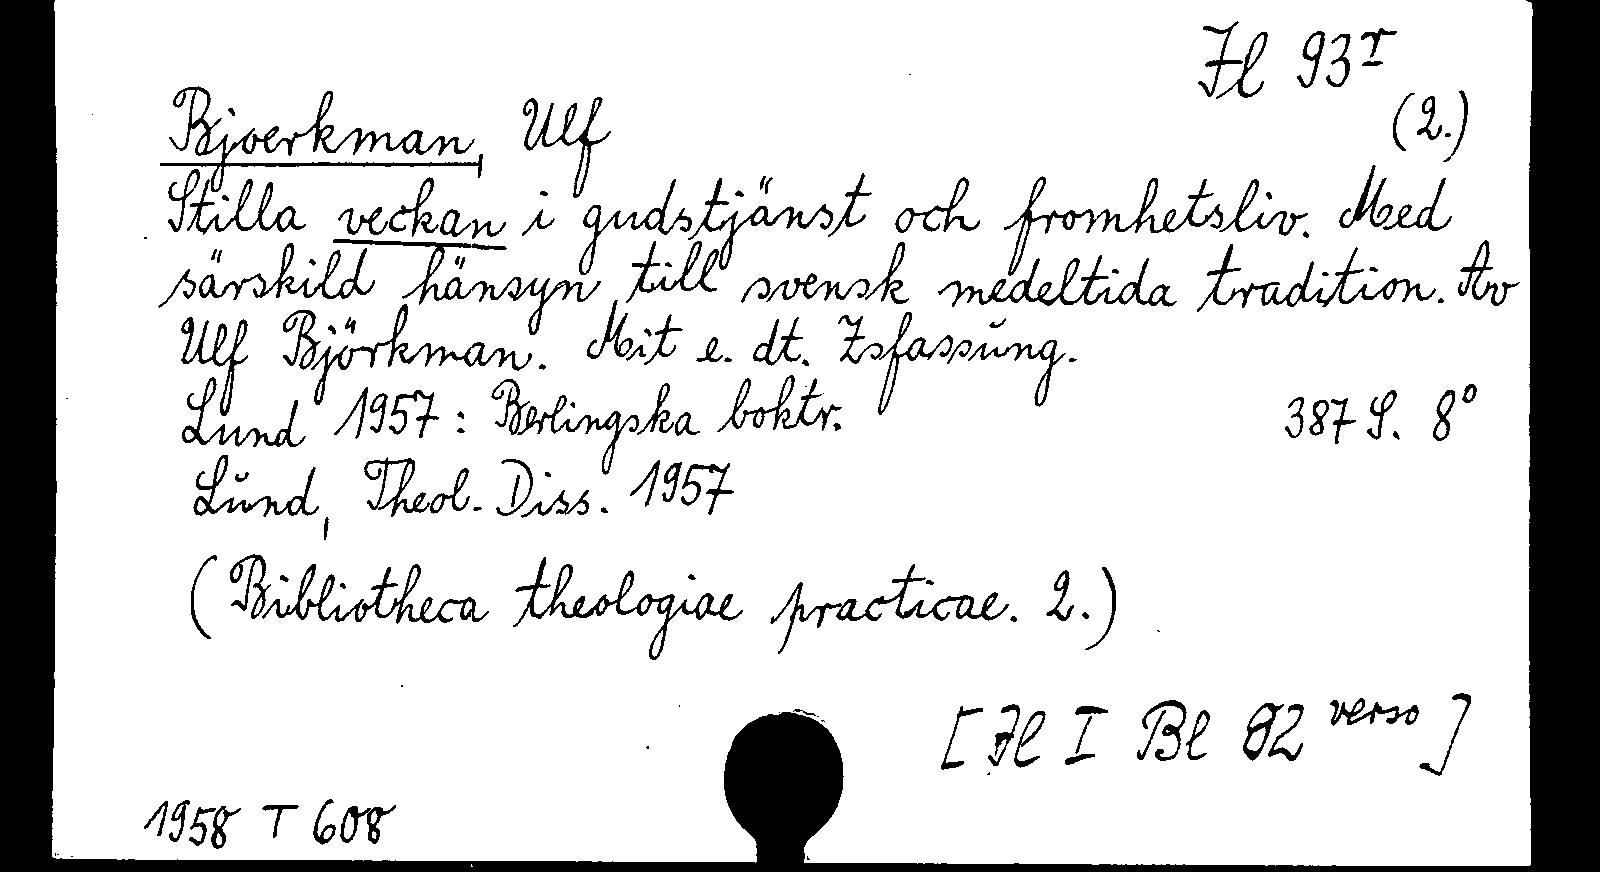 Jl 93r
(2.)
Bjoerkman, Ulf
Stilla veckan i gudstjänst och fromhetsliv. Med
särskild hänsyn till svensk medeltida tradition. Av
Ulf Björkman. Mit e. dt. Zsfassung.
Lund 1957: Berlingska boktr. 387 S. 8°
Lund, Theol. Diss. 1957
(Bibliotheca theologiae practicae. 2.)
[Jl I Bl 82 verso]
1958 T 608